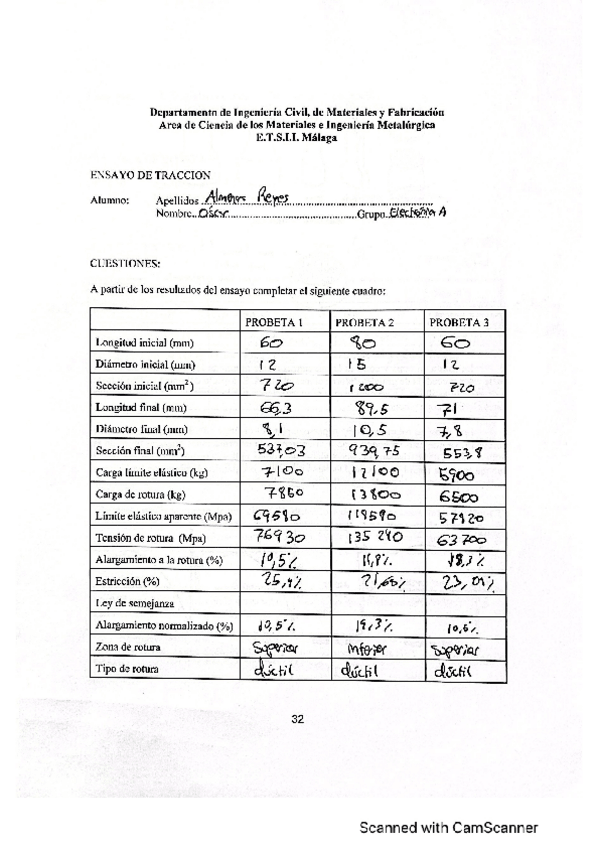 Departamento de Ingeniería Civil, de Materiales y Fabricación
Area de Ciencia de los Materiales e Ingeniería Metalúrgica
E.T.S.I.I. Málaga
ENSAYO DE TRACCION
Alumno: Apellidos Reyes
Nombre Oscar Grupo A
CUESTIONES:
A partir de los resultados del ensayo completar el siguiente cuadro:
PROBETA 1 PROBETA 2 PROBETA 3
Longitud inicial (mm) 60 80 60
Diámetro inicial (mm) 12 15 12
Sección inicial (mm²) 720 1200 720
Longitud final (mm) 66,3 89,5 71
Diámetro final (mm) 8,1 10,5 7,8
Sección final (mm²) 537,03 939,75 553,8
Carga límite elástico (kg) 7100 12100 5900
Carga de rotura (kg) 7850 13800 6500
Límite elástico aparente (Mpa) 69580 118580 57820
Tensión de rotura (Mpa) 76930 135240 63700
Alargamiento a la rotura (%) 10,5% 18,3%
Estricción (%) 25,4% 21,68%
Ley de semejanza
Alargamiento normalizado (%) 10,5% 10,6%
Zona de rotura Superior inferior Superior
Tipo de rotura dúctil dúctil dúctil
32
Scanned with CamScanner